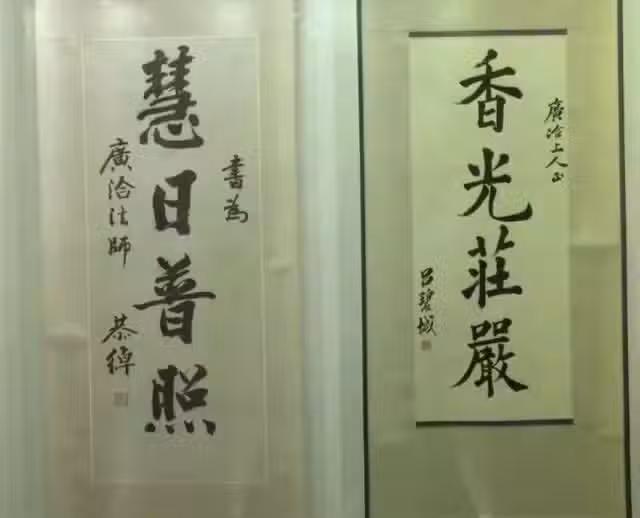 廣洽上人正
香光莊嚴
呂碧城
書為
慧日普照
廣洽法師
恭綽